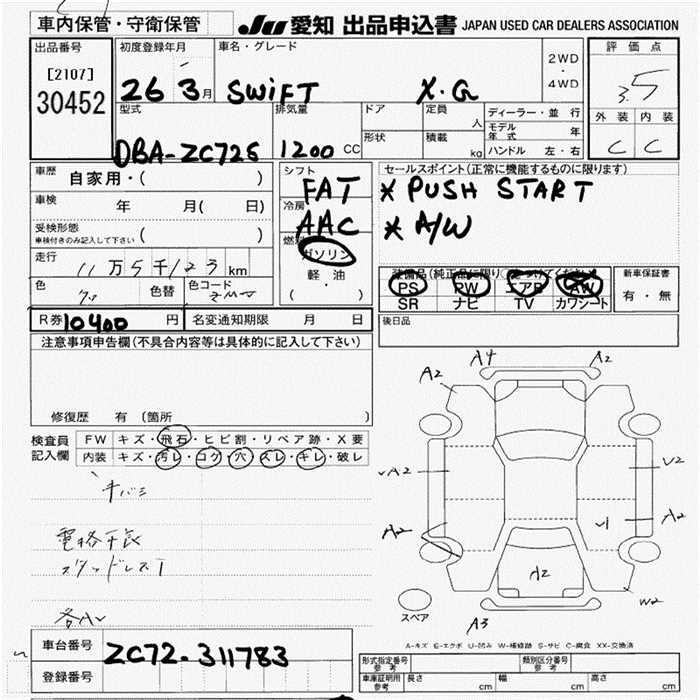 車内保管・守衛保管
JU 愛知 出品申込書 JAPAN USED CAR DEALERS ASSOCIATION
出品番号
[2107]
30452
初度登録年月
26 3月
車名・グレード
SWIFT X.G
2WD
・
4WD
評価点
3.5
外装 内装
C C
型式
DBA-ZC72S
排気量
1200 CC
ドア
形状
定員
人
積載
kg
ディーラー・並行
モデル年式 年
ハンドル 左・右
車歴
自家用・( )
車検
年 月( 日)
受検形態
車検付きのみ記入して下さい ( )
走行
11万5千123km
色
色替
色コード
シフト
FAT
冷房
AAC
燃料
ガソリン
軽・油
( )
セールスポイント(正常に機能するものに限ります)
* PUSH START
* A/W
装備品(純正品に限り○をつけてください)
PS PW エアB AW
SR ナビ TV カワシート
新車保証書
有・無
R券 10400 円
名変通知期限 月 日
後日品
注意事項申告欄(不具合内容等は具体的に記入して下さい)
修復歴 有 (箇所
検査員
記入欄
FW キズ・飛石・ヒビ割・リペア跡・X要
内装 キズ・汚レ・コゲ・穴・スレ・キレ・破レ
スタッドレス
A4 A2
A2
A2 U2
A2 A2
A2
W2
A3
スペア
A-キズ E-エクボ U-凹み W-補修跡 S-サビ C-腐食 XX-交換済
車台番号
ZC72-311783
登録番号
型式指定番号
参考
類別区分番号
参考
車庫証明用
参考
長さ cm 幅 cm 高さ cm